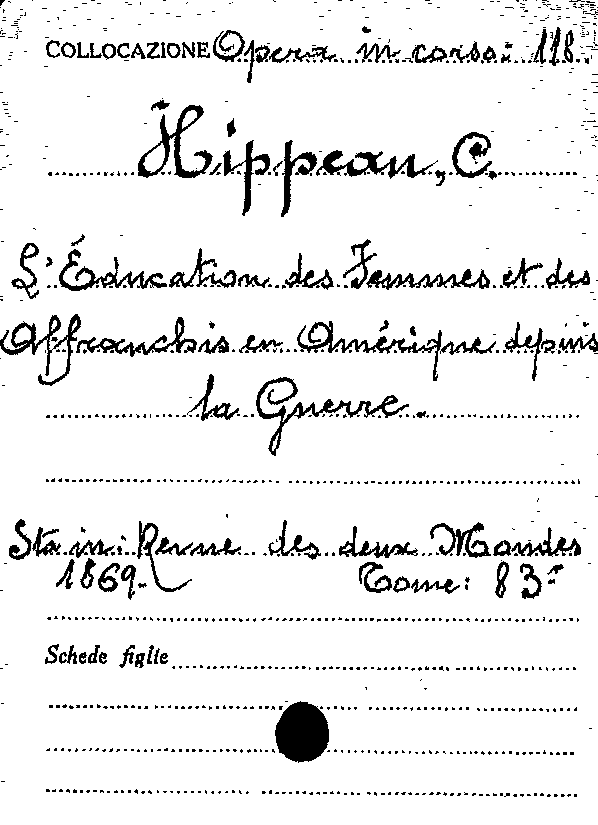 COLLOCAZIONE Opera in corso: 118.
Hippeau, C.
L'Éducation des Femmes et des
Affranchis en Amérique depuis
la Guerre.
Sta in: Revue des deux Mondes
1869. Tome: 83º
Schede figlie